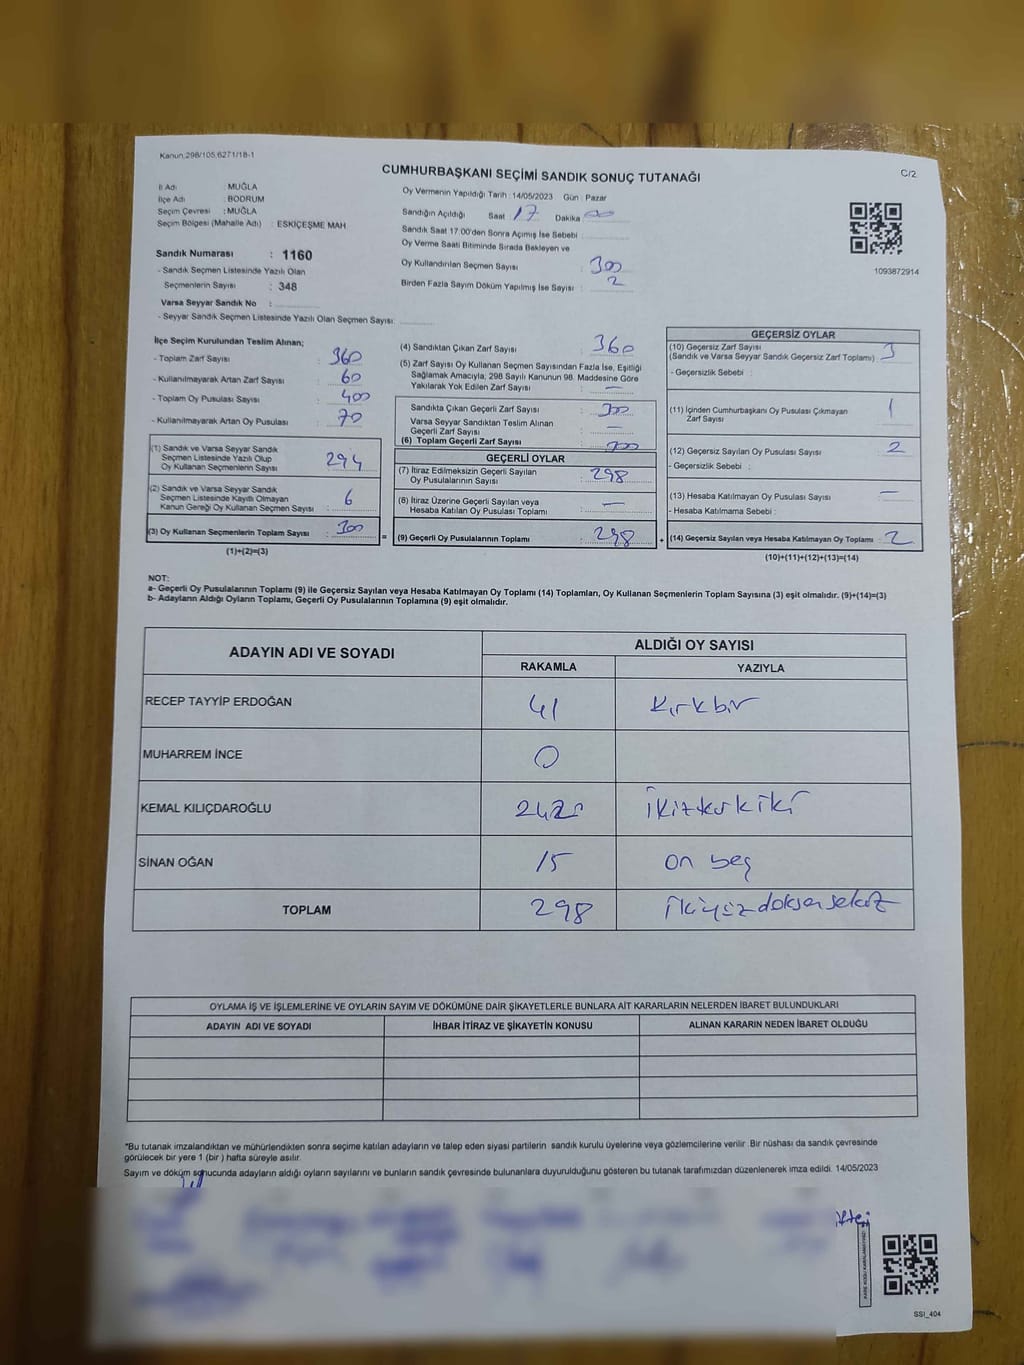 Kanun,298/105,6271/18-1
C/2
CUMHURBAŞKANI SEÇİMİ SANDIK SONUÇ TUTANAĞI
İl Adı : MUĞLA
İlçe Adı : BODRUM
Seçim Çevresi : MUĞLA
Seçim Bölgesi (Mahalle Adı) : ESKİÇEŞME MAH
Sandık Numarası : 1160
- Sandık Seçmen Listesinde Yazılı Olan
Seçmenlerin Sayısı : 348
Varsa Seyyar Sandık No :
- Seyyar Sandık Seçmen Listesinde Yazılı Olan Seçmen Sayısı:
Oy Vermenin Yapıldığı Tarih : 14/05/2023 Gün : Pazar
Sandığın Açıldığı Saat : 17 Dakika : 00
Sandık Saat 17:00'den Sonra Açımış İse Sebebi :
Oy Verme Saati Bitiminde Sırada Bekleyen ve
Oy Kullandırılan Seçmen Sayısı : 300
Birden Fazla Sayım Döküm Yapılmış İse Sayısı : 2
1093872914
İlçe Seçim Kurulundan Teslim Alınan;
- Toplam Zarf Sayısı : 360
- Kullanılmayarak Artan Zarf Sayısı : 60
- Toplam Oy Pusulası Sayısı : 400
- Kullanılmayarak Artan Oy Pusulası : 70
(1) Sandık ve Varsa Seyyar Sandık
Seçmen Listesinde Yazılı Olup
Oy Kullanan Seçmenlerin Sayısı : 294
(2) Sandık ve Varsa Seyyar Sandık
Seçmen Listesinde Kayıtlı Olmayan
Kanun Gereği Oy Kullanan Seçmen Sayısı : 6
(3) Oy Kullanan Seçmenlerin Toplam Sayısı : 300 =
(1)+(2)=(3)
(4) Sandıktan Çıkan Zarf Sayısı : 360
(5) Zarf Sayısı Oy Kullanan Seçmen Sayısından Fazla İse, Eşitliği
Sağlamak Amacıyla; 298 Sayılı Kanunun 98. Maddesine Göre
Yakılarak Yok Edilen Zarf Sayısı : —
Sandıkta Çıkan Geçerli Zarf Sayısı : 300
Varsa Seyyar Sandıktan Teslim Alınan
Geçerli Zarf Sayısı : —
(6) Toplam Geçerli Zarf Sayısı : 300
GEÇERLİ OYLAR
(7) İtiraz Edilmeksizin Geçerli Sayılan
Oy Pusulalarının Sayısı : 298
(8) İtiraz Üzerine Geçerli Sayılan veya
Hesaba Katılan Oy Pusulası Toplamı : —
(9) Geçerli Oy Pusulalarının Toplamı : 298 +
GEÇERSİZ OYLAR
(10) Geçersiz Zarf Sayısı
(Sandık ve Varsa Seyyar Sandık Geçersiz Zarf Toplamı) : 3
- Geçersizlik Sebebi :
(11) İçinden Cumhurbaşkanı Oy Pusulası Çıkmayan
Zarf Sayısı : 1
(12) Geçersiz Sayılan Oy Pusulası Sayısı : 2
- Geçersizlik Sebebi :
(13) Hesaba Katılmayan Oy Pusulası Sayısı : —
- Hesaba Katılmama Sebebi :
(14) Geçersiz Sayılan veya Hesaba Katılmayan Oy Toplamı : 2
(10)+(11)+(12)+(13)=(14)
NOT:
a- Geçerli Oy Pusulalarının Toplamı (9) ile Geçersiz Sayılan veya Hesaba Katılmayan Oy Toplamı (14) Toplamları, Oy Kullanan Seçmenlerin Toplam Sayısına (3) eşit olmalıdır. (9)+(14)=(3)
b- Adayların Aldığı Oyların Toplamı, Geçerli Oy Pusulalarının Toplamına (9) eşit olmalıdır.
ADAYIN ADI VE SOYADI ALDIĞI OY SAYISI
RAKAMLA YAZIYLA
RECEP TAYYİP ERDOĞAN 41 kırkbir
MUHARREM İNCE 0
KEMAL KILIÇDAROĞLU 242
SİNAN OĞAN 15 on beş
TOPLAM 298 ikiyüzdoksansekiz
OYLAMA İŞ VE İŞLEMLERİNE VE OYLARIN SAYIM VE DÖKÜMÜNE DAİR ŞİKAYETLERLE BUNLARA AİT KARARLARIN NELERDEN İBARET BULUNDUKLARI
ADAYIN ADI VE SOYADI İHBAR İTİRAZ VE ŞİKAYETİN KONUSU ALINAN KARARIN NEDEN İBARET OLDUĞU
*Bu tutanak imzalandıktan ve mühürlendikten sonra seçime katılan adayların ve talep eden siyasi partilerin sandık kurulu üyelerine veya gözlemcilerine verilir. Bir nüshası da sandık çevresinde
görülecek bir yere 1 (bir ) hafta süreyle asılır.
Sayım ve döküm sonucunda adayların aldığı oyların sayılarını ve bunların sandık çevresinde bulunanlara duyurulduğunu gösteren bu tutanak tarafımızdan düzenlenerek imza edildi. 14/05/2023
KARE KODU KARALAMAYINIZ
SSI_404